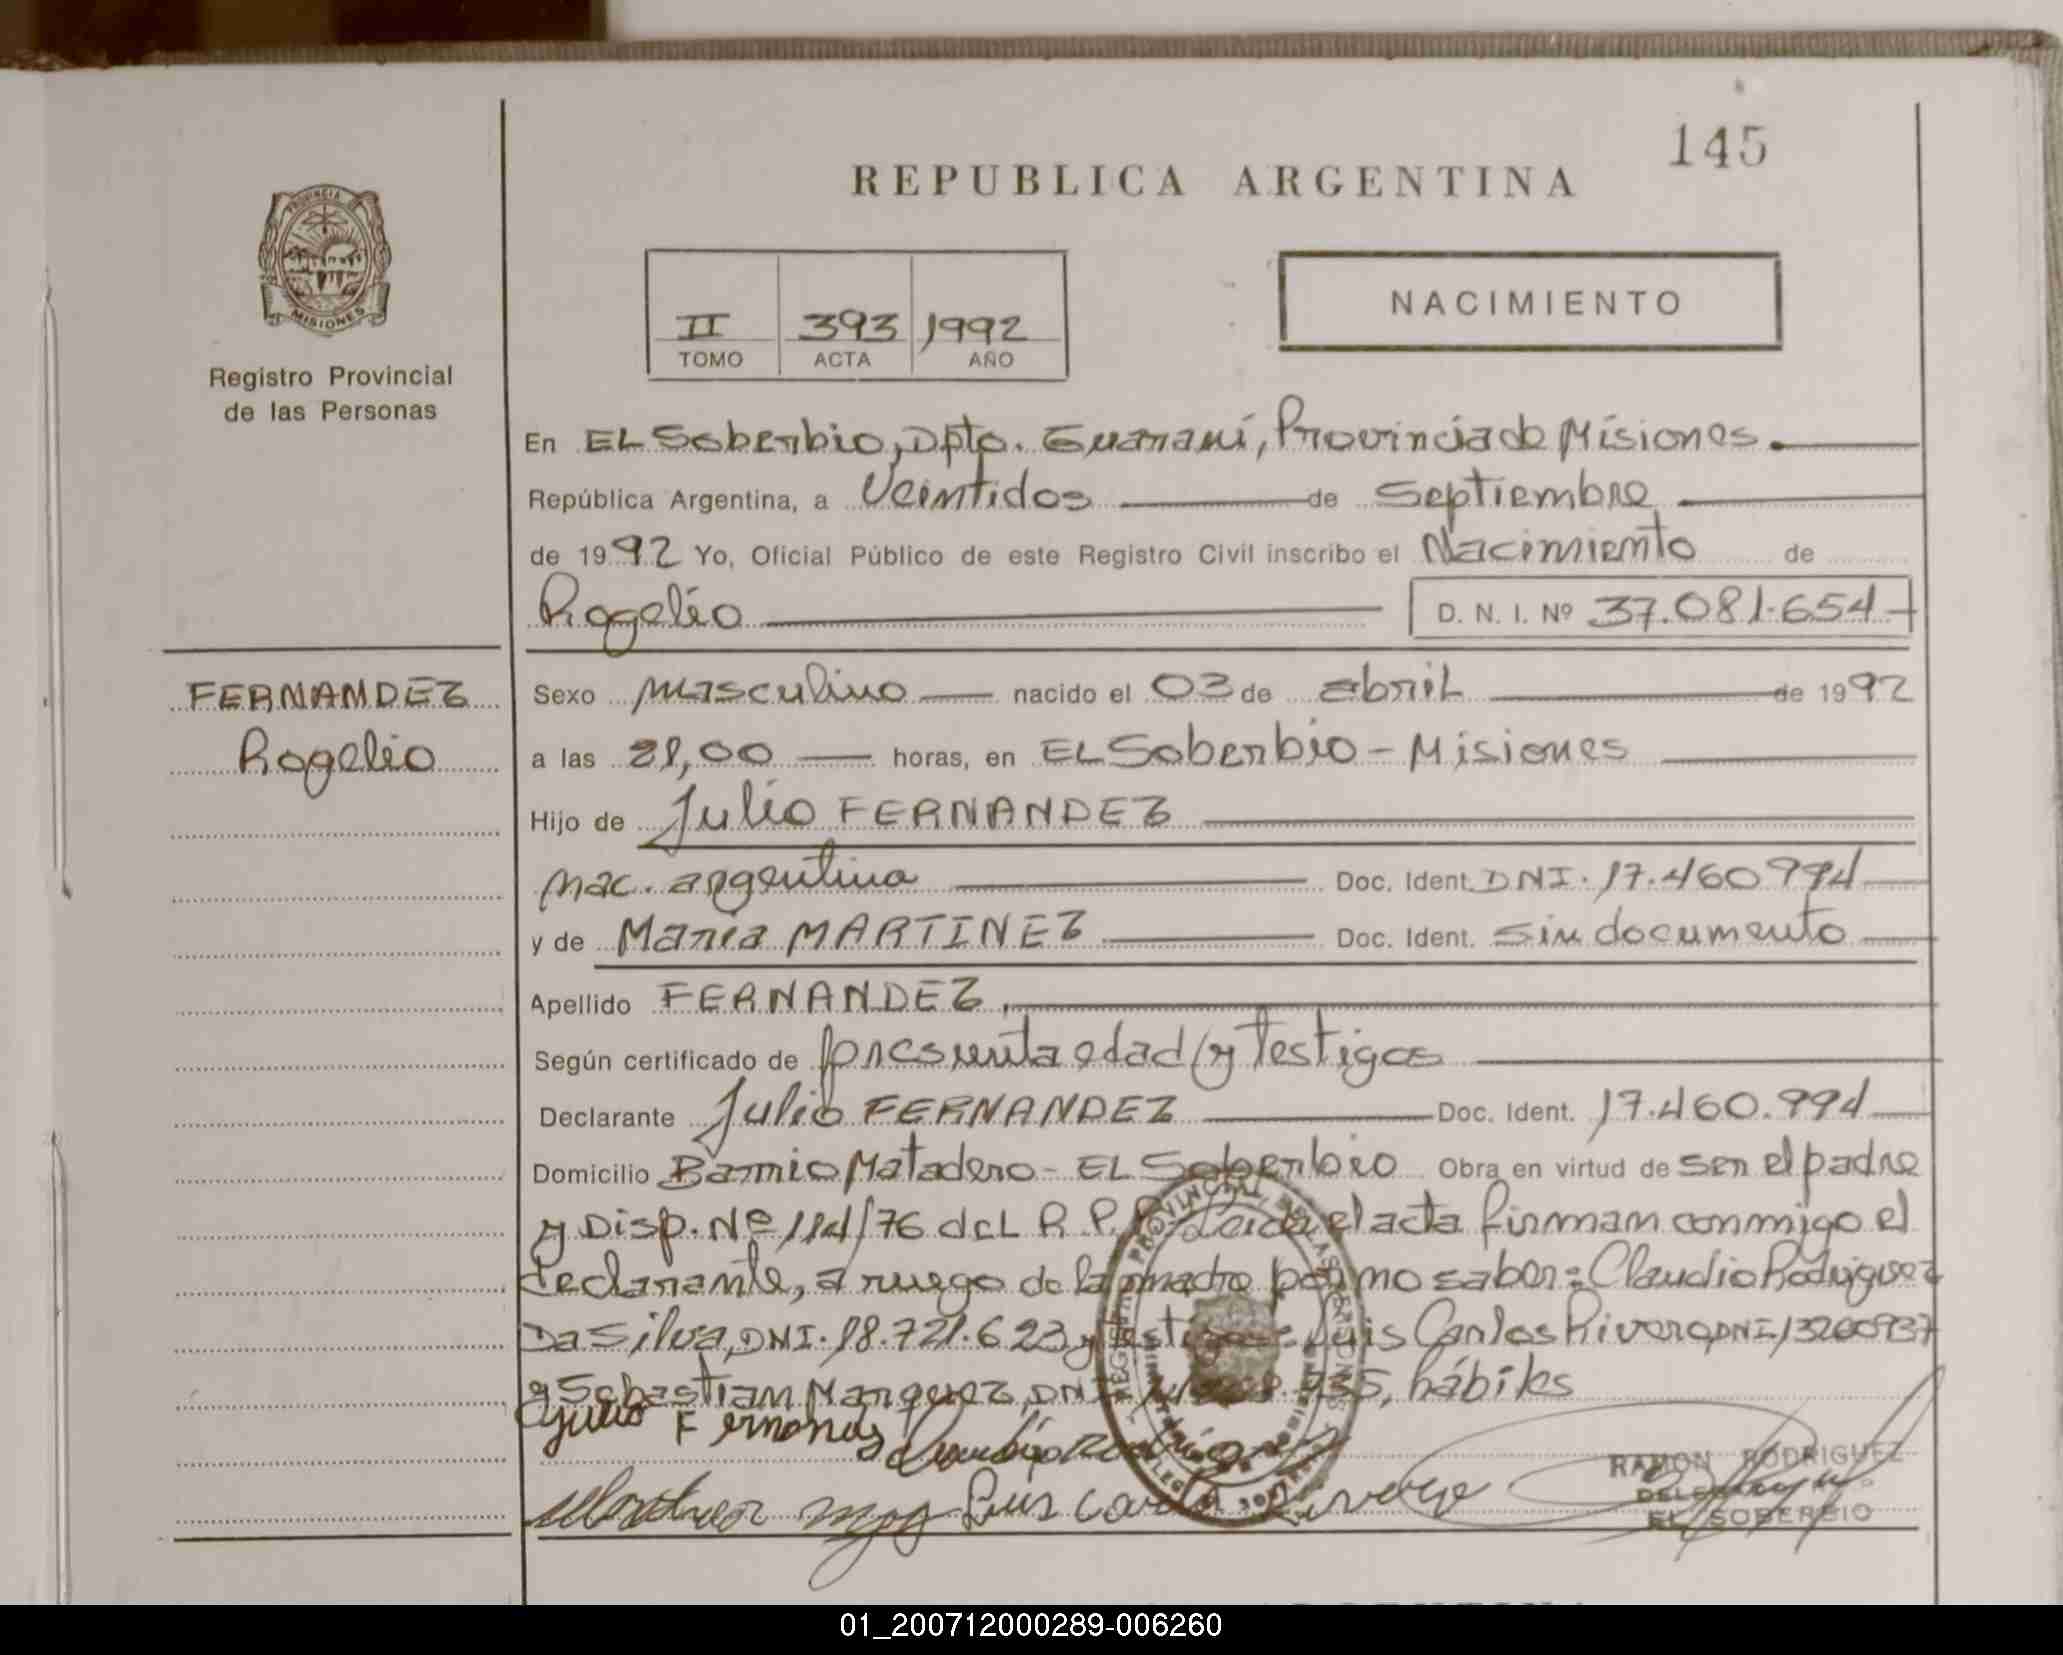 145
REPUBLICA ARGENTINA
PROVINCIA DE
MISIONES
Registro Provincial
de las Personas
II 393 1992
TOMO ACTA AÑO
NACIMIENTO
En EL Soberbio, Dpto. Guaraní, Provincia de Misiones.
República Argentina, a Veintidos de Septiembre
de 1992 Yo, Oficial Público de este Registro Civil inscribo el Nacimiento de
Rogelio D. N. I. Nº 37.081.654
FERNANDEZ
Rogelio
Sexo masculino nacido el 03 de abril de 1992
a las 21,00 horas, en EL Soberbio - Misiones
Hijo de Julio FERNANDEZ
nac. argentina Doc. Ident. DNI. 17.460994
y de Maria MARTINEZ Doc. Ident. sin documento
Apellido FERNANDEZ,
Según certificado de presunta edad y testigos
Declarante Julio FERNANDEZ Doc. Ident. 17.460.994
Domicilio Barrio Matadero - EL Soberbio Obra en virtud de ser el padre
y Disp. Nº 114/76 del R.P.P. Leida el acta firman conmigo el
declarante, a ruego de la madre por no saber: Claudio Rodriguez
Da Silva, DNI. 18.721.623 y testigos: Luis Carlos Rivero, DNI 13200937
y Sebastian Marquez, DNI 935, hábiles
Julio Fernandes
Luis Carlos
RAMON RODRIGUEZ
EL SOBERBIO
01_200712000289-006260